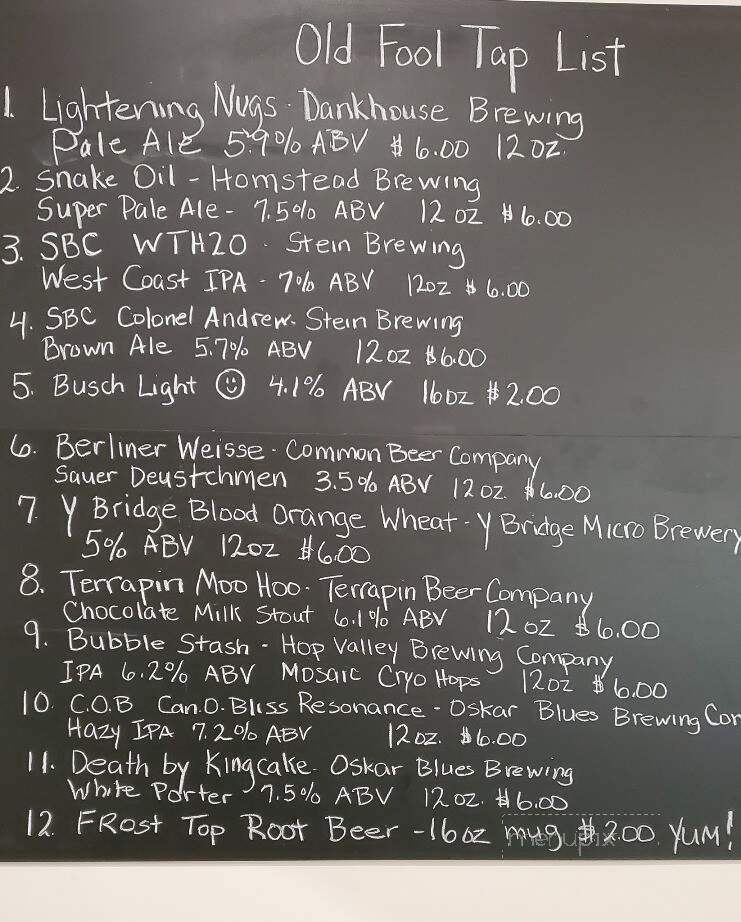 Old Fool Tap List
1. Lightening Nugs - Dankhouse Brewing
Pale Ale 5.9% ABV $6.00 12 oz.
2. Snake Oil - Homstead Brewing
Super Pale Ale - 7.5% ABV 12 oz $6.00
3. SBC WTH20 - Stein Brewing
West Coast IPA - 7% ABV 12oz $6.00
4. SBC Colonel Andrew - Stein Brewing
Brown Ale 5.7% ABV 12 oz $6.00
5. Busch Light ☺ 4.1% ABV 16oz $2.00
6. Berliner Weisse - Common Beer Company
Sauer Deustchmen 3.5% ABV 12 oz. $6.00
7. Y Bridge Blood Orange Wheat - Y Bridge Micro Brewery
5% ABV 12oz $6.00
8. Terrapin Moo Hoo - Terrapin Beer Company
Chocolate Milk Stout 6.1% ABV 12 oz $6.00
9. Bubble Stash - Hop Valley Brewing Company
IPA 6.2% ABV Mosaic Cryo Hops 12oz $6.00
10. C.O.B Can.O.Bliss Resonance - Oskar Blues Brewing Com
Hazy IPA 7.2% ABV 12oz. $6.00
11. Death by Kingcake - Oskar Blues Brewing
White Porter 7.5% ABV 12oz. $6.00
12. Frost Top Root Beer - 16oz mug $2.00 YUM!
menupix